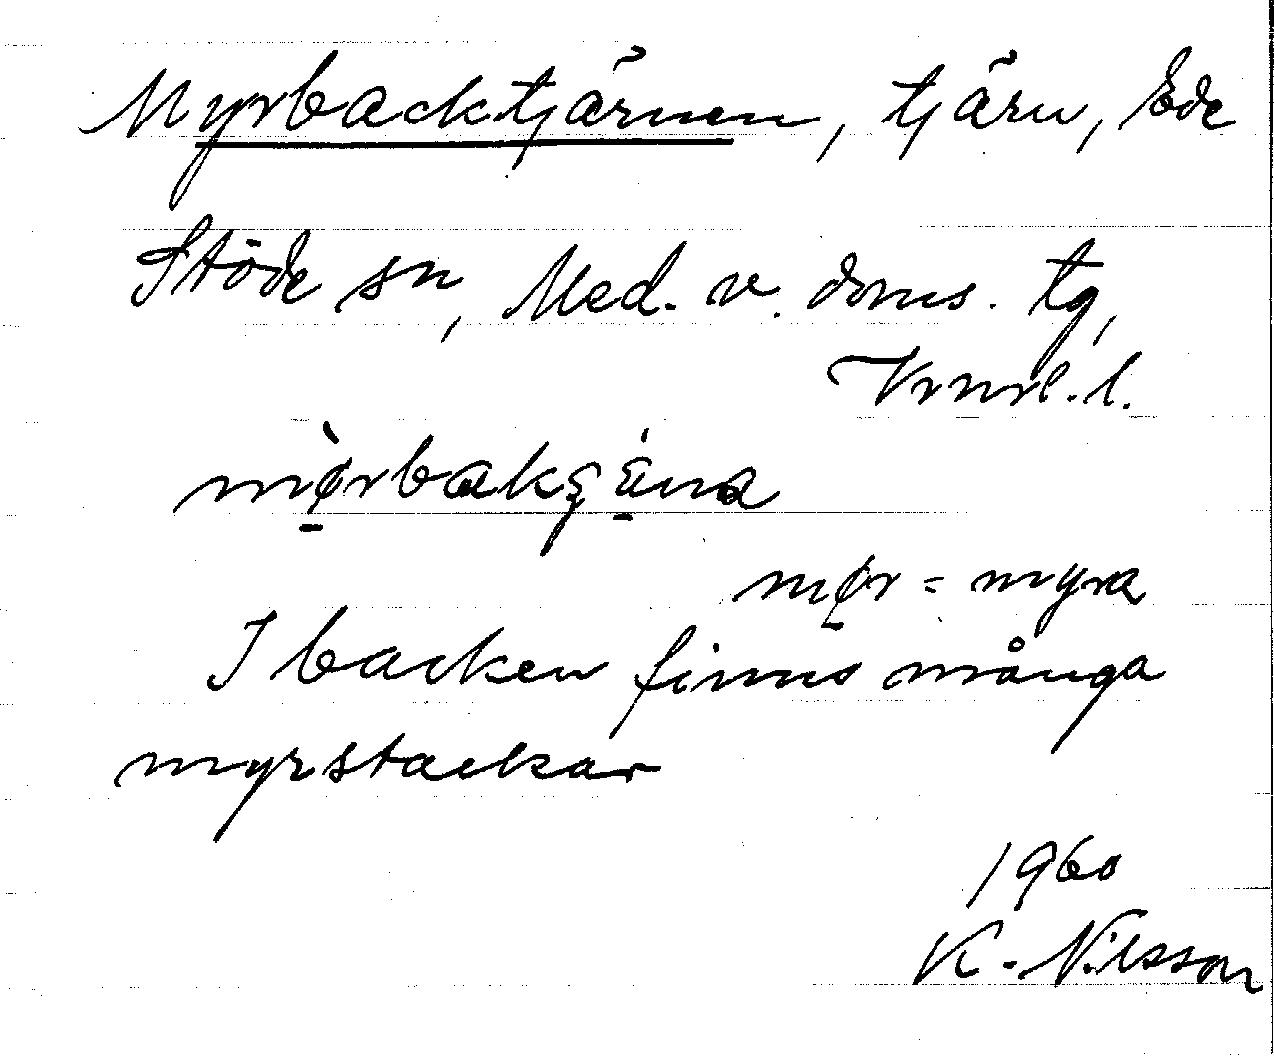 Myrbacktjärnen, tjärn, Ede
Stöde sn, Med. v. doms. tg,
Vrnrl. l.
mø̱̀rbakʂä̱́na
mø̱r = myra
I backen finns många
myrstackar
1960
K. Nilsson